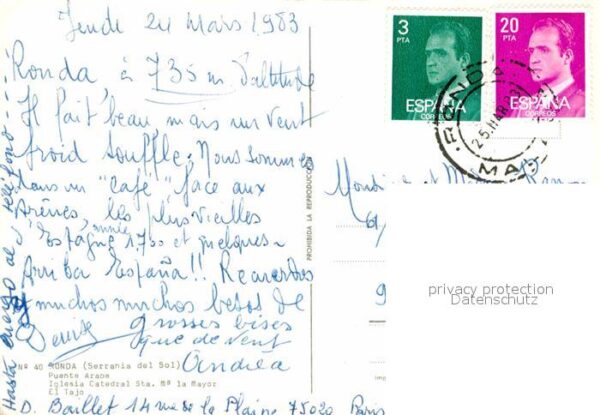 Jeudi 24 Mars 1983
Ronda, à 735 m d'altitude
Il fait beau mais un vent
froid souffle. Nous sommes
dans un "café" face aux
Arènes, les plus vieilles
d'Espagne année 1.7 et quelques-
Arriba España!! Recuerdos
y muchos muchos besos de
Denise
Grosses bises
que de vent
Andréa
Hasta al teléfono ---
Nº 40 RONDA (Serrania del Sol)
Puente Arabe
Iglesia Catedral Sta. Mª la Mayor
El Tajo
D. Baillet 14 rue de la Plaine 75020 Paris
PROHIBIDA LA REPRODUCCION
3
PTA
ESPAÑA
CORREOS
20
PTA
ESPAÑA
CORREOS
RONDA
25 MAR
Monsieur et
61,
9
privacy protection
Datenschutz